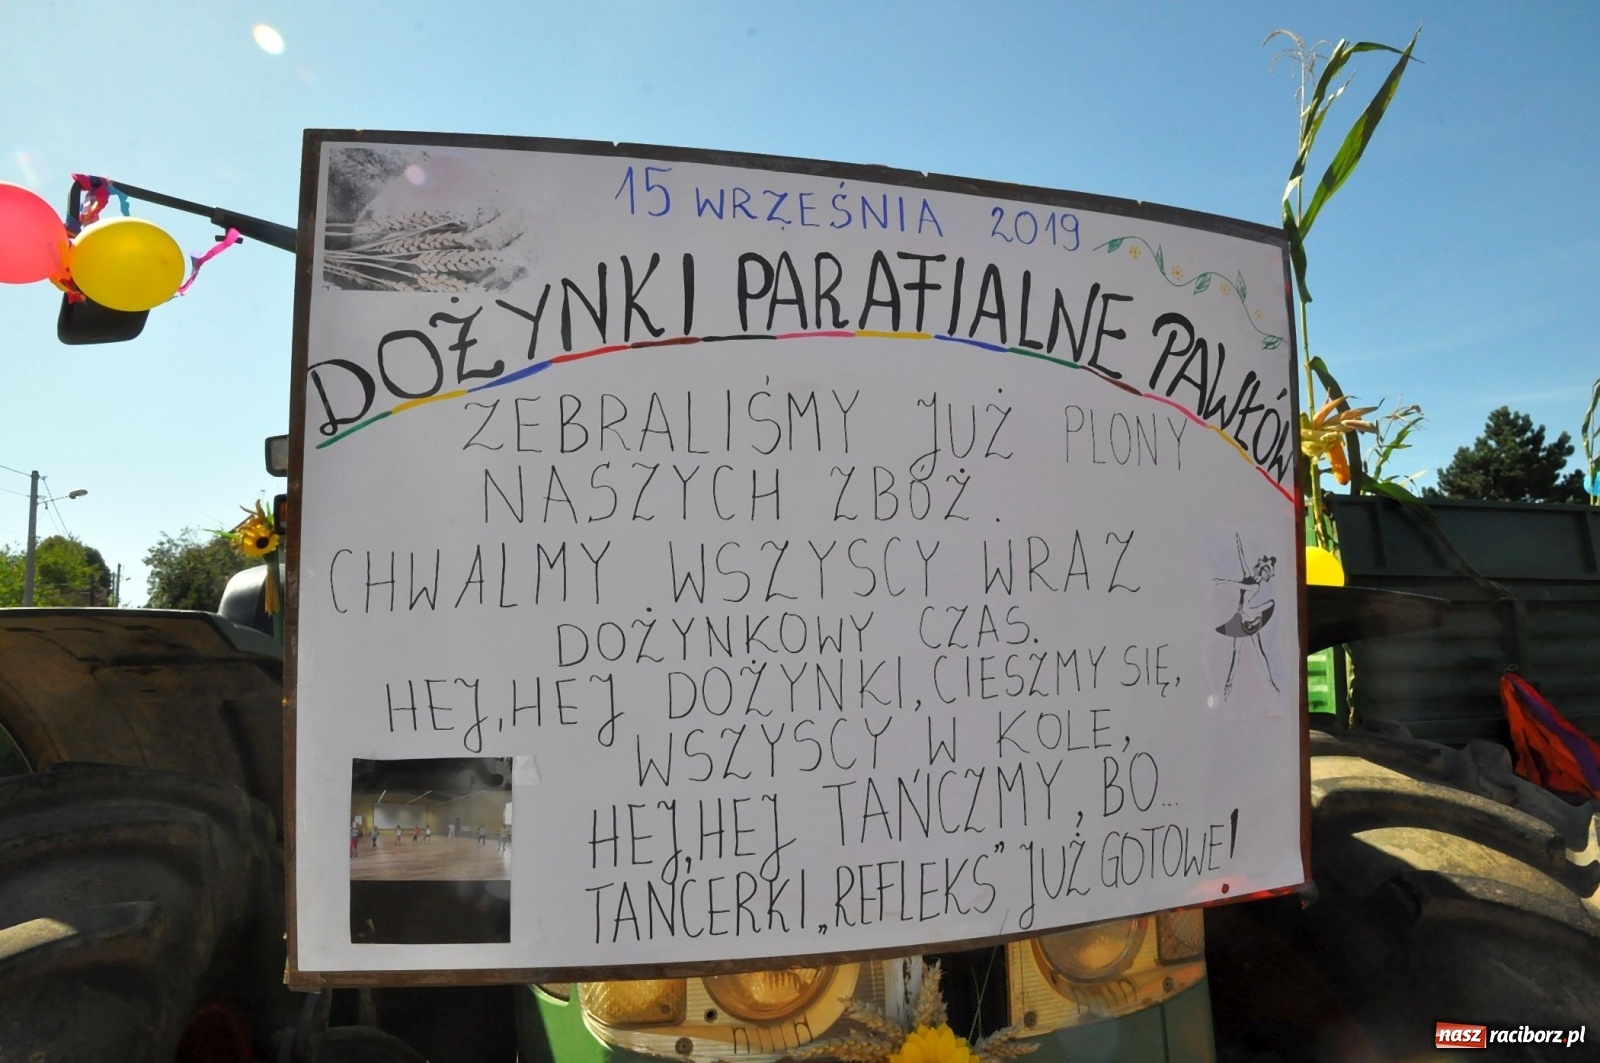 15 WRZEŚNIA 2019
DOŻYNKI PARAFIALNE PAWŁÓW
ZEBRALIŚMY JUŻ PLONY
NASZYCH ZBÓŻ.
CHWALMY WSZYSCY WRAZ
DOŻYNKOWY CZAS.
HEJ, HEJ DOŻYNKI, CIESZMY SIĘ,
WSZYSCY W KOLE,
HEJ, HEJ TAŃCZMY, BO...
TANCERKI „REFLEKS” JUŻ GOTOWE!
nasz raciborz.pl